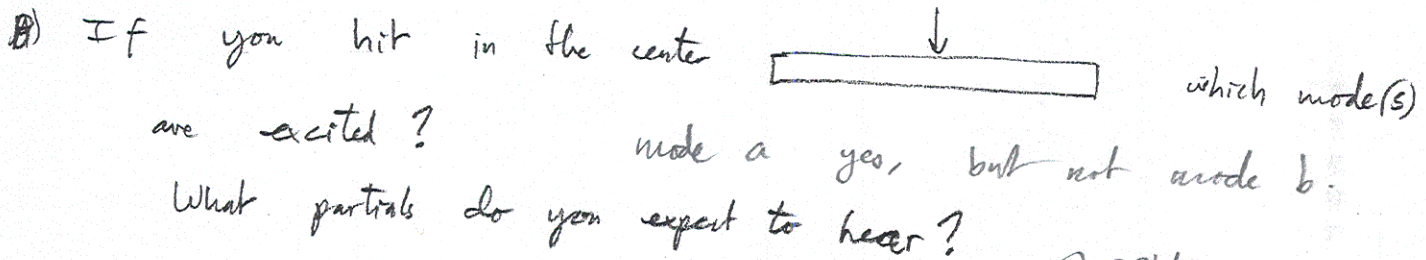 If you hit in the center which mode(s)
are excited? mode a yes, but not mode b.
What partials do you expect to hear?